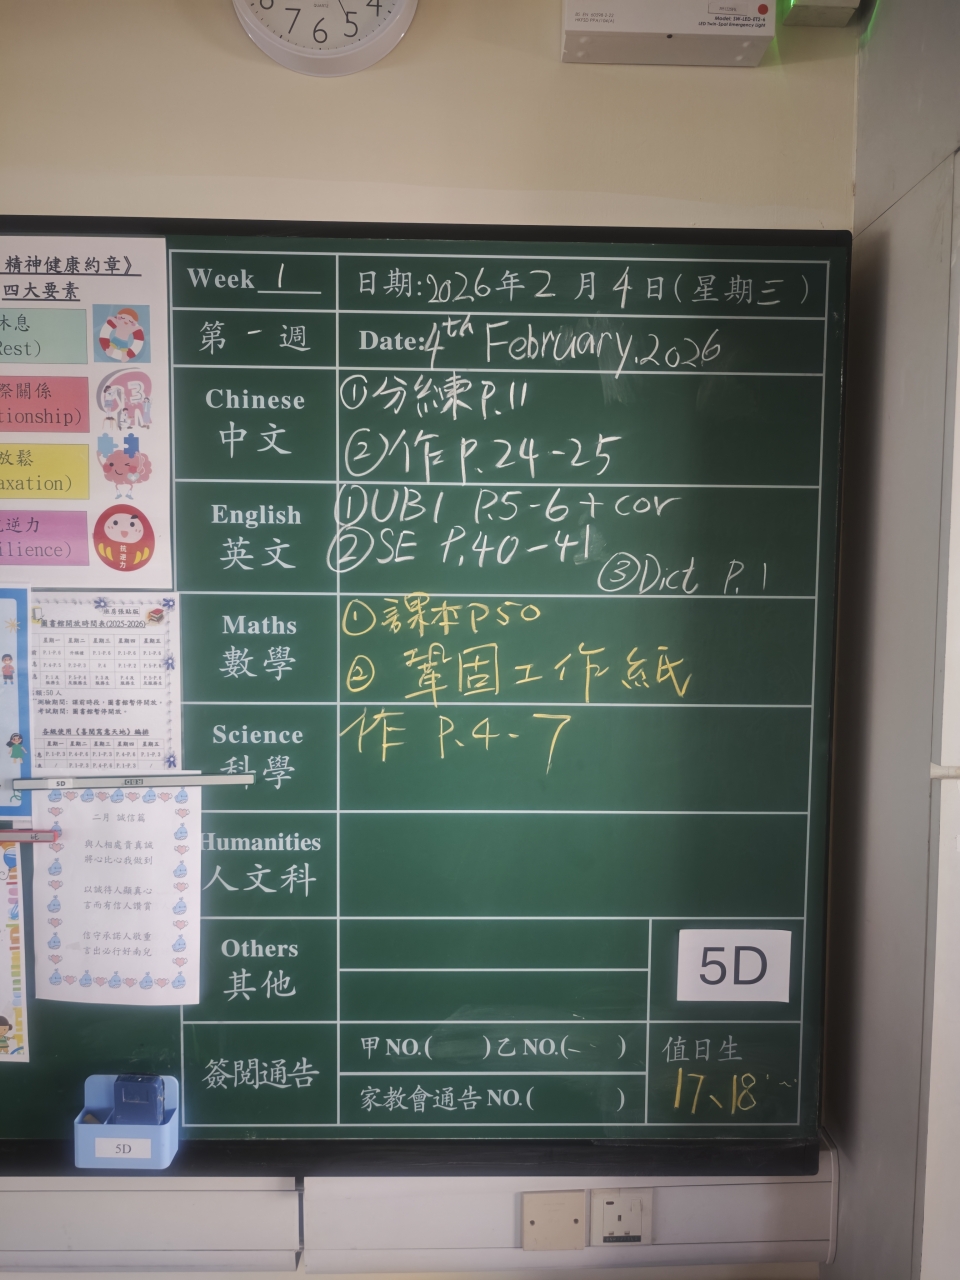 7 6 5 4
Model: SW-LED-ET2-6
LED Twin Spot Emergency Light
精神健康約章》
四大要素
休息
Rest)
際關係
tionship)
放鬆
axation)
逆力
ilience)
抗逆力
Week 1
日期:2026年2月4日(星期三)
第一週
Date:4th February.2026
Chinese
中文
①分練P.11
②作 P.24-25
English
英文
①UB1 P.5-6+cor
②SE P.40-41
③Dict P.1
Maths
數學
①課本P50
② 鞏固工作紙
Science
科學
作 P.4-7
Humanities
人文科
Others
其他
5D
簽閱通告
甲 NO.( ) 乙 NO.( )
家教會通告 NO.( )
值日生
17、18
圖書館開放時間表(2025-2026)
星期一 星期二 星期三 星期四 星期五
5D
二月 誠信篇
與人相處貴真誠
將心比心我做到
以誠待人顯真心
言而有信人讚賞
信守承諾人敬重
言出必行好南兒
5D